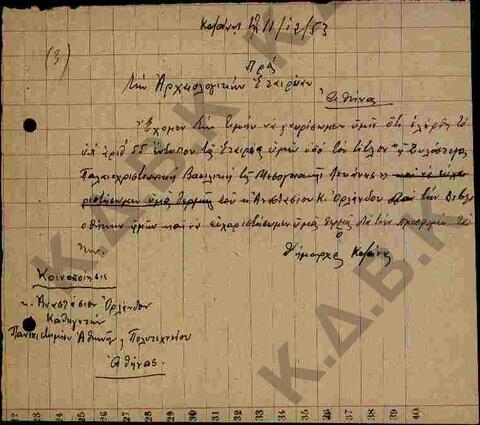 Κοζάνη τῇ 11/12/53
(3)
Πρὸς
τὴν Ἀρχαιολογικὴν Ἑταιρείαν
Ἀθήνας
Ἔχομεν τὴν τιμὴν νὰ γνωρίσωμεν ὑμῖν ὅτι ἐλήφθη τὸ
ὑπ' ἀριθ 55 ἔντυπον τῆς Ἑταιρείας ὑμῶν ὑπὸ τὸν τίτλον "ἡ Ξυλόστεγος
Παλαιοχριστιανικὴ Βασιλικὴ τῆς Μεσογειακῆς Λεκάνης"
ριστήσωμεν ὑμᾶς θερμῶς τοῦ κ. Ἀναστασίου Κ. Ὀρλάνδου διὰ τὴν Βιβλι
οθήκην ἡμῶν καὶ νὰ εὐχαριστήσωμεν ὑμᾶς θερμῶς διὰ τὴν προσφορὰν
την.
Ὁ
Δήμαρχος Κοζάνης
Κοινοποίησις
κ. Ἀναστάσιον Ὀρλάνδον
Καθηγητὴν
Πανεπιστημίου Ἀθηνῶν Πολυτεχνείου
Ἀθήνας.
Κ.Δ.Β.Κ.
22 23 24 25 26 27 28 29 30 31 32 33 34 35 36 37 38 39 40